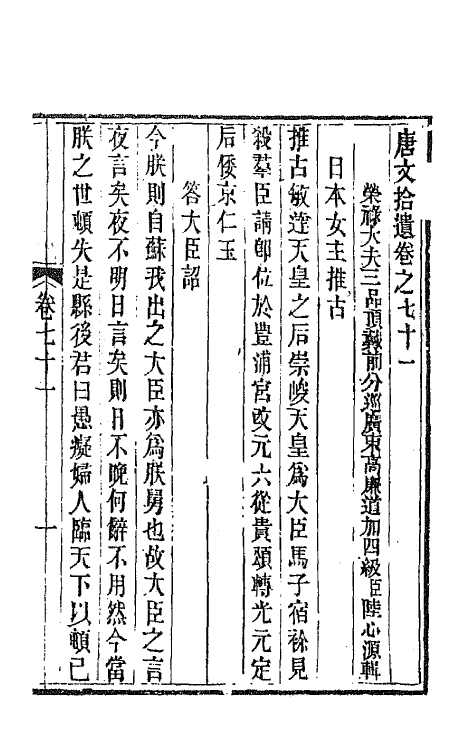 唐文拾遺卷之七十一
榮祿大夫三品頂戴前分巡廣東高廉道加四級臣陸心源輯
日本女主推古
推古敏達天皇之后崇峻天皇爲大臣馬子宿祢見
殺羣臣請卽位於豊浦宮改元六從貴頌轉光元定
后倭京仁王
答大臣詔
今朕則自蘇我出之大臣亦爲朕舅也故大臣之言
夜言矣夜不明日言矣則日不晚何辭不用然今當
朕之世頓失是縣後君曰愚癡婦人臨天下以頓已
卷七十一
一